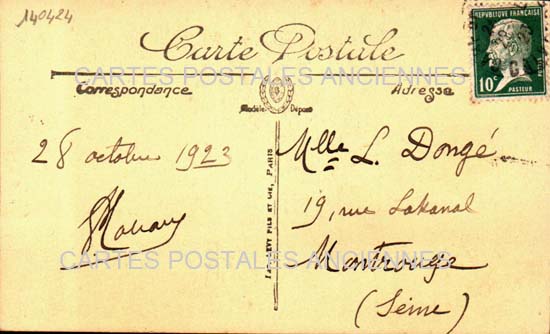 140424
Carte Postale
CARTES POSTALES ANCIENNES
Correspondance
Adresse
Modèle Déposé
REPUBLIQUE FRANÇAISE
10c
POSTES
PASTEUR
28 octobre 1923
Mlle L. Dongé
19, rue Lakanal
Montrouge
(Seine)
LEVY FILS ET CIE, PARIS
CARTES POSTALES ANCIENNES